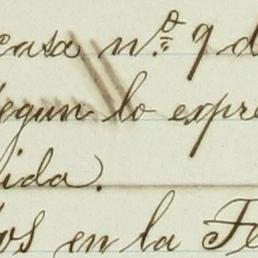 casa n.º 9 d
segun lo expre
ida.
os en la Fe